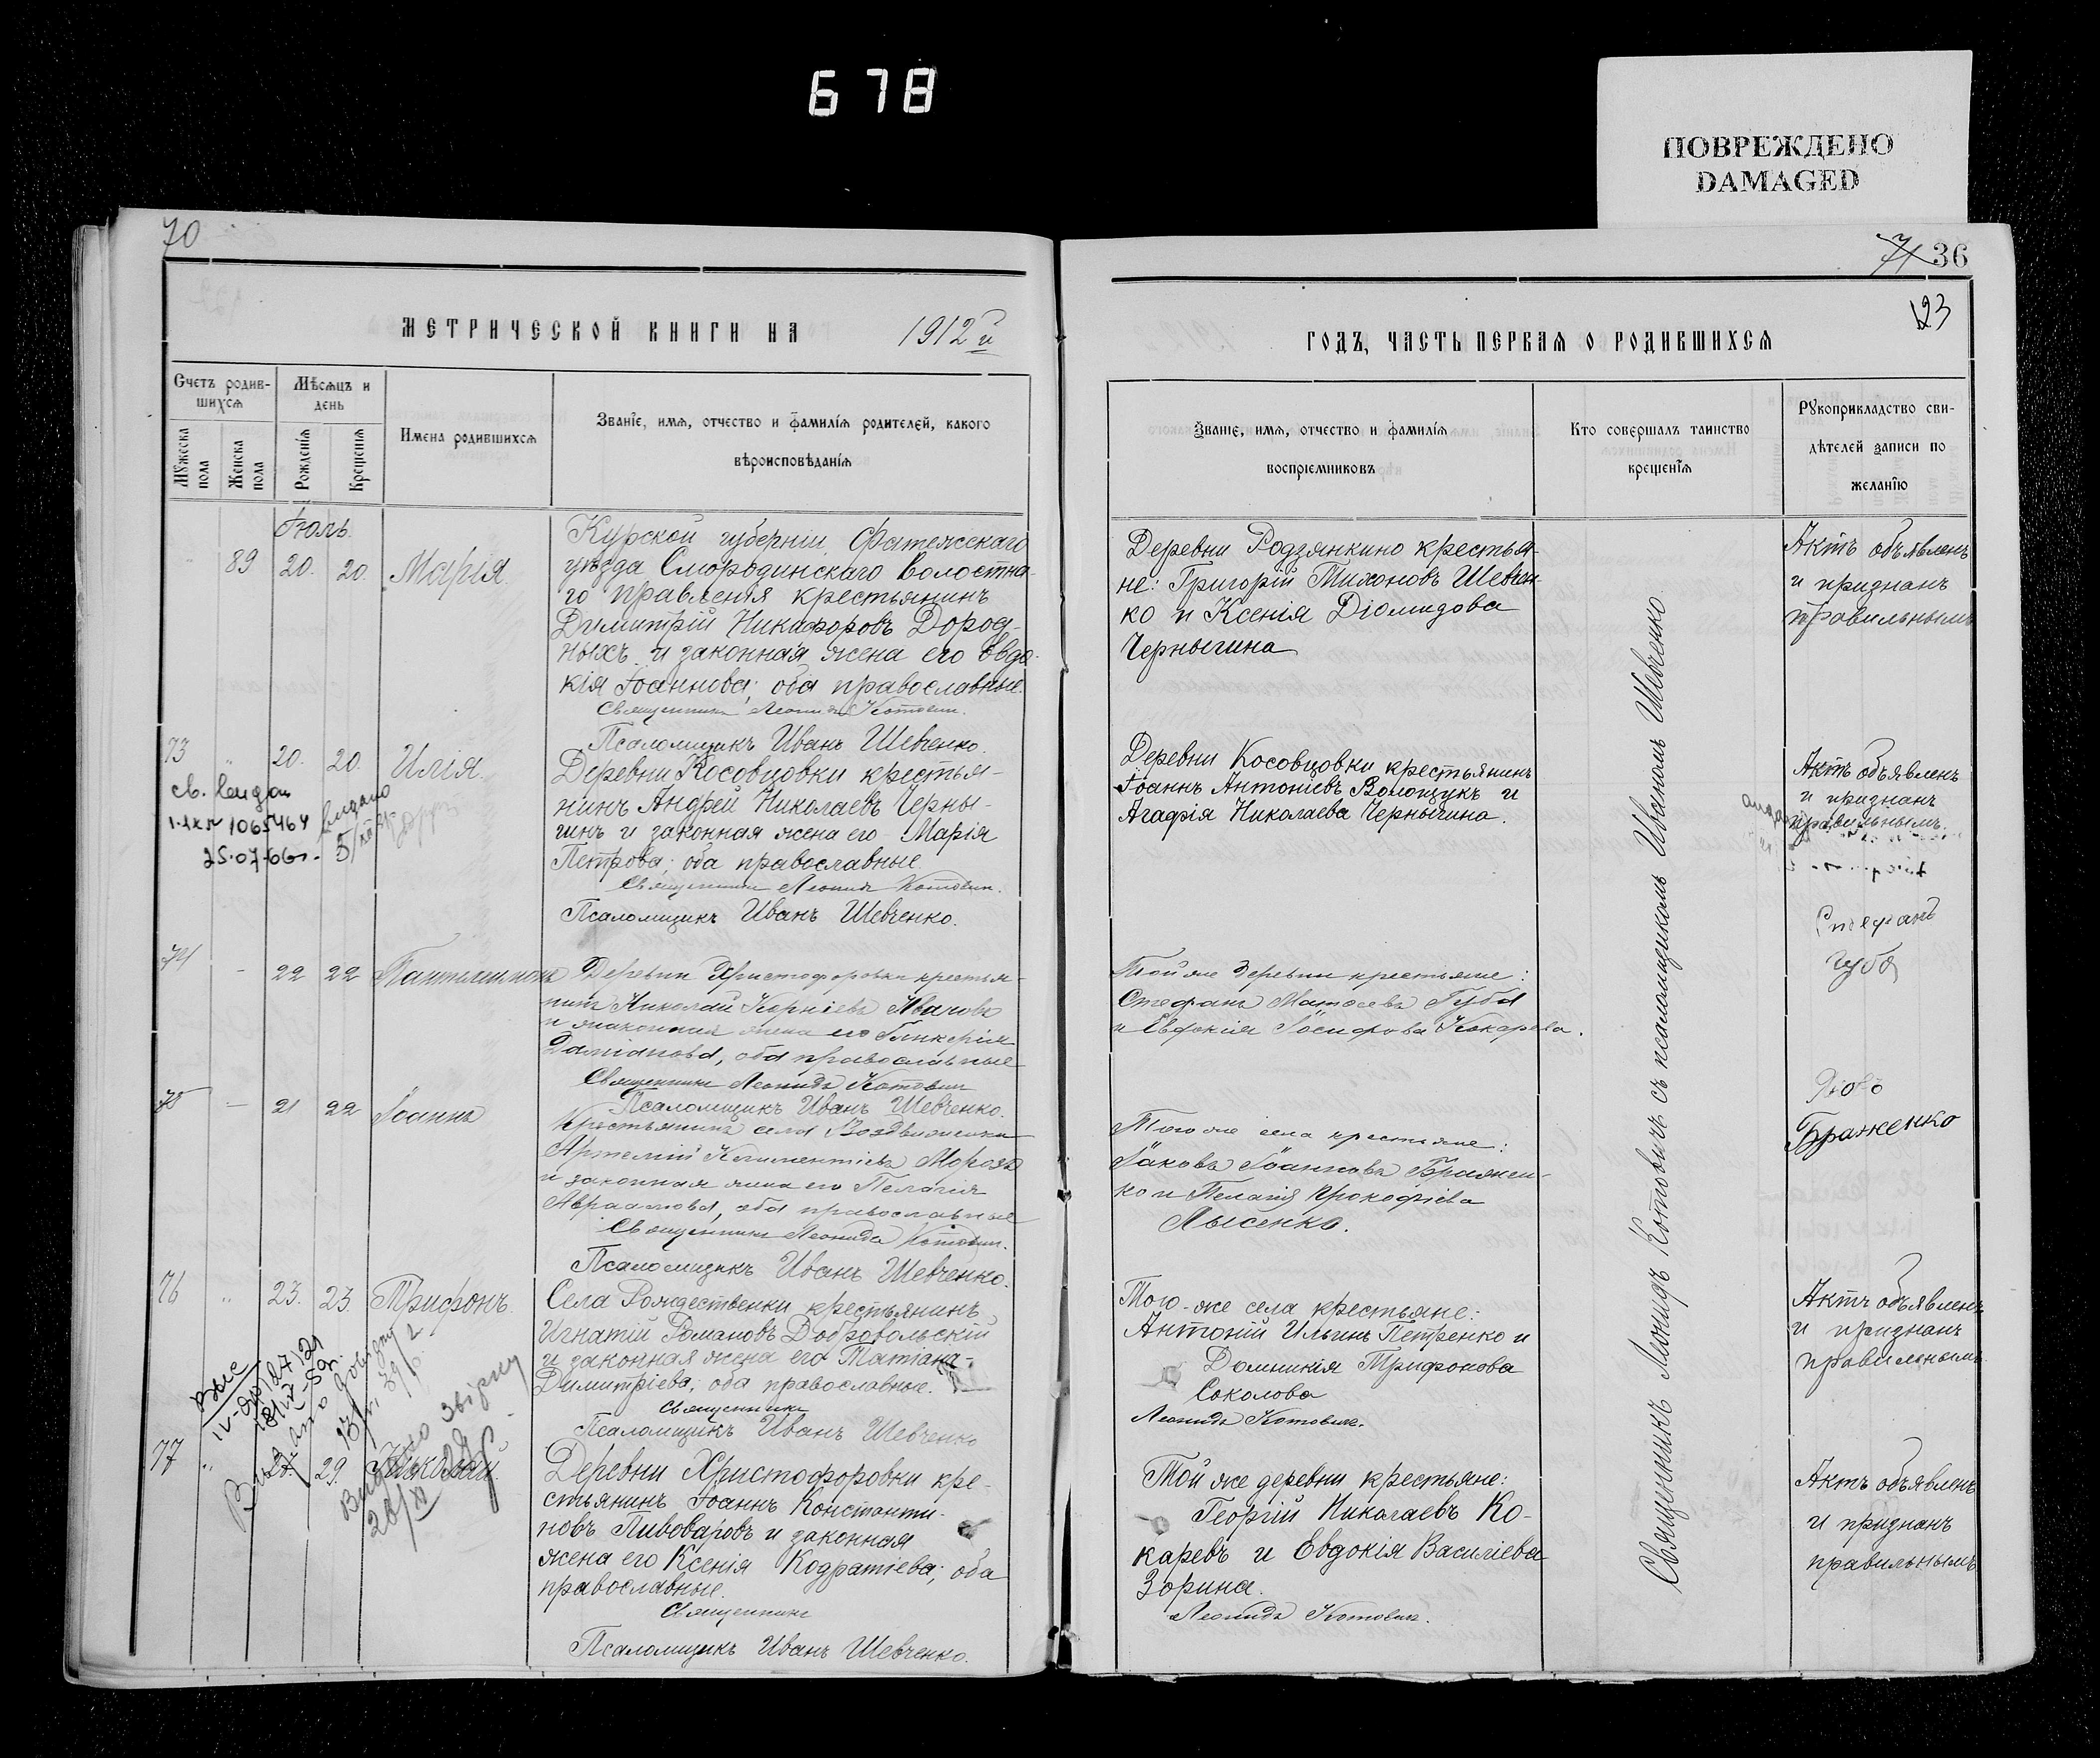 678
ПОВРЕЖДЕНО
DAMAGED
70
МЕТРИЧЕСКОЙ КНИГИ НА 1912й
Счетъ родив-
шихся
Мѣсяцъ и
день
Мужеска пола
Женска пола
Рожденія
Крещенія
Имена родившихся
Званіе, имя, отчество и фамилія родителей, какого
вѣроисповѣданія
Іюль.
89 20. 20. Марія.
Курской губерніи Фатежскаго
уѣзда Смородинскаго волостна-
го правленія крестьянинъ
Димитрій Никифоровъ Дород-
ныхъ и законная жена его Евдо-
кія Іоаннова; оба православные.
Священникъ Леонидъ Котович.
Псаломщикъ Иванъ Шевченко.
73 " 20. 20. Илія.
св.
1065464
25.07.66г.
Деревни Косовцовки крестья-
нинъ Андрей Николаевъ Черны-
чинъ и законная жена его Марія
Петрова; оба православные
Священникъ Леонид Котович.
Псаломщикъ Иванъ Шевченко.
74 - 22 22 Пантелеимонъ
Деревни Христофоровки крестья-
нинъ Николай Корніевъ Ивановъ
и законная жена его Гликерія
Даміанова, оба православные
Священникъ Леонидъ Котович
Псаломщикъ Иванъ Шевченко.
75 - 21 22 Іоаннъ
Крестьянинъ села Воздвиженки
Артемій Климентіевъ Морозъ
и законная жена его Пелагія
Авраамова, оба православные
Священникъ Леонидъ Котович.
Псаломщикъ Иванъ Шевченко.
76 " 23. 23. Трифонъ.
Села Рождественки крестьянинъ
Игнатій Романовъ Добровольскій
и законная жена его Татіана
Димитріева; оба православные.
Священникъ
Псаломщикъ Иванъ Шевченко
77 " 29. Николай.
Деревни Христофоровки кре-
стьянинъ Іоаннъ Константи-
новъ Пивоваровъ и законная
жена его Ксенія Кодратіева; оба
православные.
Священникъ
Псаломщикъ Иванъ Шевченко.
71 36
123
ГОДЪ, ЧАСТЬ ПЕРВАЯ О РОДИВШИХСЯ
Званіе, имя, отчество и фамилія
воспріемниковъ
Кто совершалъ таинство
крещенія
Рукоприкладство сви-
дѣтелей записи по
желанію
Деревни Родзянкино крестья-
не: Григорій Тихоновъ Шевчен-
ко и Ксенія Діомидова
Чернычина
Актъ объявленъ
и признанъ
правильнымъ
Деревни Косовцовки крестьянинъ
Іоаннъ Антоніевъ Волощукъ и
Агафія Николаева Чернычина.
Актъ объявленъ
и признанъ
правильнымъ.
Той же деревни крестьяне:
Стефанъ Матѳеевъ Губа
и Евдокія Іосифова Кокарева.
Стефанъ
Губа
Того же села крестьяне:
Іаковъ Іоанновъ Бражен-
ко и Пелагія Прокофіева
Лысенко.
Браженко
Того-же села крестьяне:
Антоній Ильинъ Петренко и
Домникія Трифонова
Соколова
Леонидъ Котовичъ.
Актъ объявленъ
и признанъ
правильнымъ
Той же деревни крестьяне:
Георгій Николаевъ Ко-
каревъ и Евдокія Василіева
Зорина.
Леонидъ Котовичъ.
Актъ объявленъ
и признанъ
правильнымъ
Священникъ Леонидъ Котовичъ съ псаломщикомъ Иваномъ Шевченко